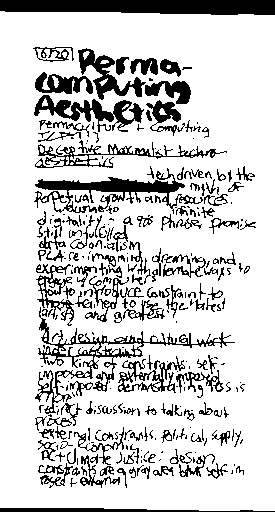 6/20
Perma-
computing
Aesthetics
Permaculture + computing
Deceptive Maximalist techno-
aesthetics
tech driven by the
myth of
perpetual growth and resources.
infinite
digitality: a 90s phrase, promise
still unfulfilled
data colonialism
re-imagining, dreaming, and
experimenting with alternate ways to
engage w/ computers
how to introduce constraint to
those to use the latest
(artist) and greatest?
Art, design and cultural work
under constraints
Two kinds of constraints: self-
imposed and externally imposed
self-imposed: demonstrating less is
more
redirect discussion to talking about
process
external constraints: political, supply,
socio-economic
climate justice: design
constraints are a gray area self-im
posed + external